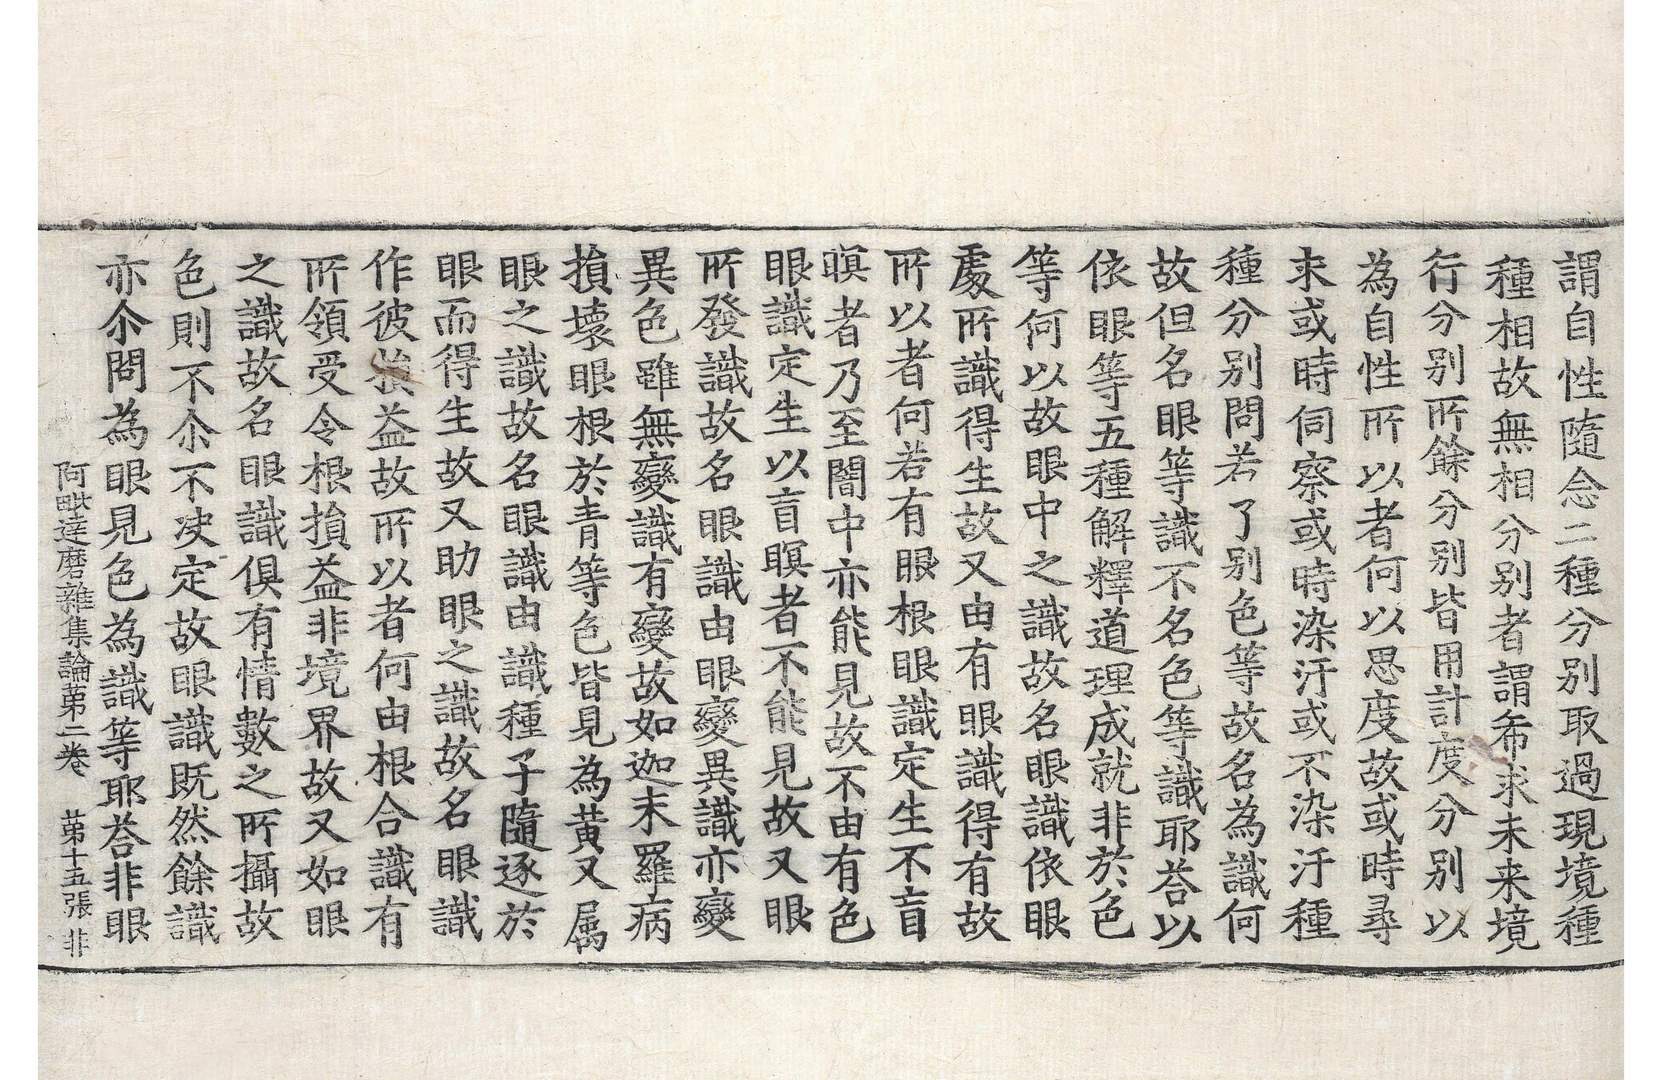 謂自性隨念二種分别取過現境種
種相故無相分别者謂希求未来境
行分别所餘分别皆用計度分别以
為自性所以者何以思度故或時尋
求或時伺察或時染汙或不染汙種
種分别問若了别色等故名為識何
故但名眼等識不名色等識耶荅以
依眼等五種解釋道理成就非於色
等何以故眼中之識故名眼識依眼
處所識得生故又由有眼識得有故
所以者何若有眼根眼識定生不盲
瞑者乃至闇中亦能見故不由有色
眼識定生以盲瞑者不能見故又眼
所發識故名眼識由眼變異識亦變
異色雖無變識有變故如迦末羅病
損壞眼根於青等色皆見為黄又属
眼之識故名眼識由識種子隨逐於
眼而得生故又助眼之識故名眼識
作彼損益故所以者何由根合識有
所領受令根損益非境界故又如眼
之識故名眼識俱有情數之所攝故
色則不尒不决定故眼識既然餘識
亦尒問為眼見色為識等耶荅非眼
阿毗達磨雜集論苐二卷 苐十五張 非